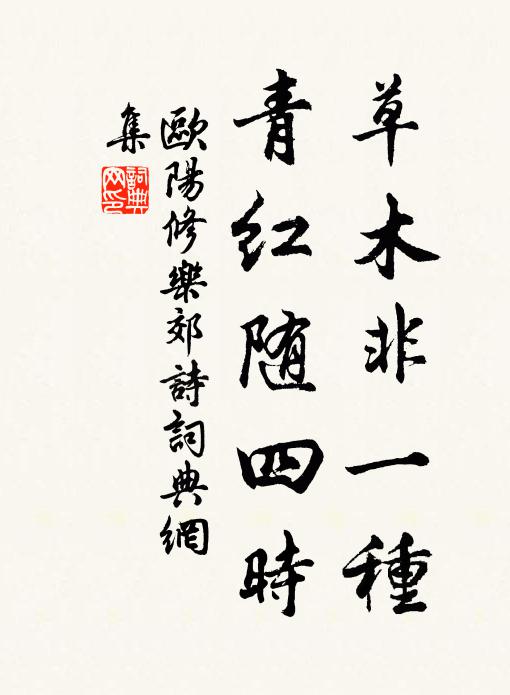 草木非一種
青红随四時
歐陽修樂郊詩詞典網
集
詞典
网印